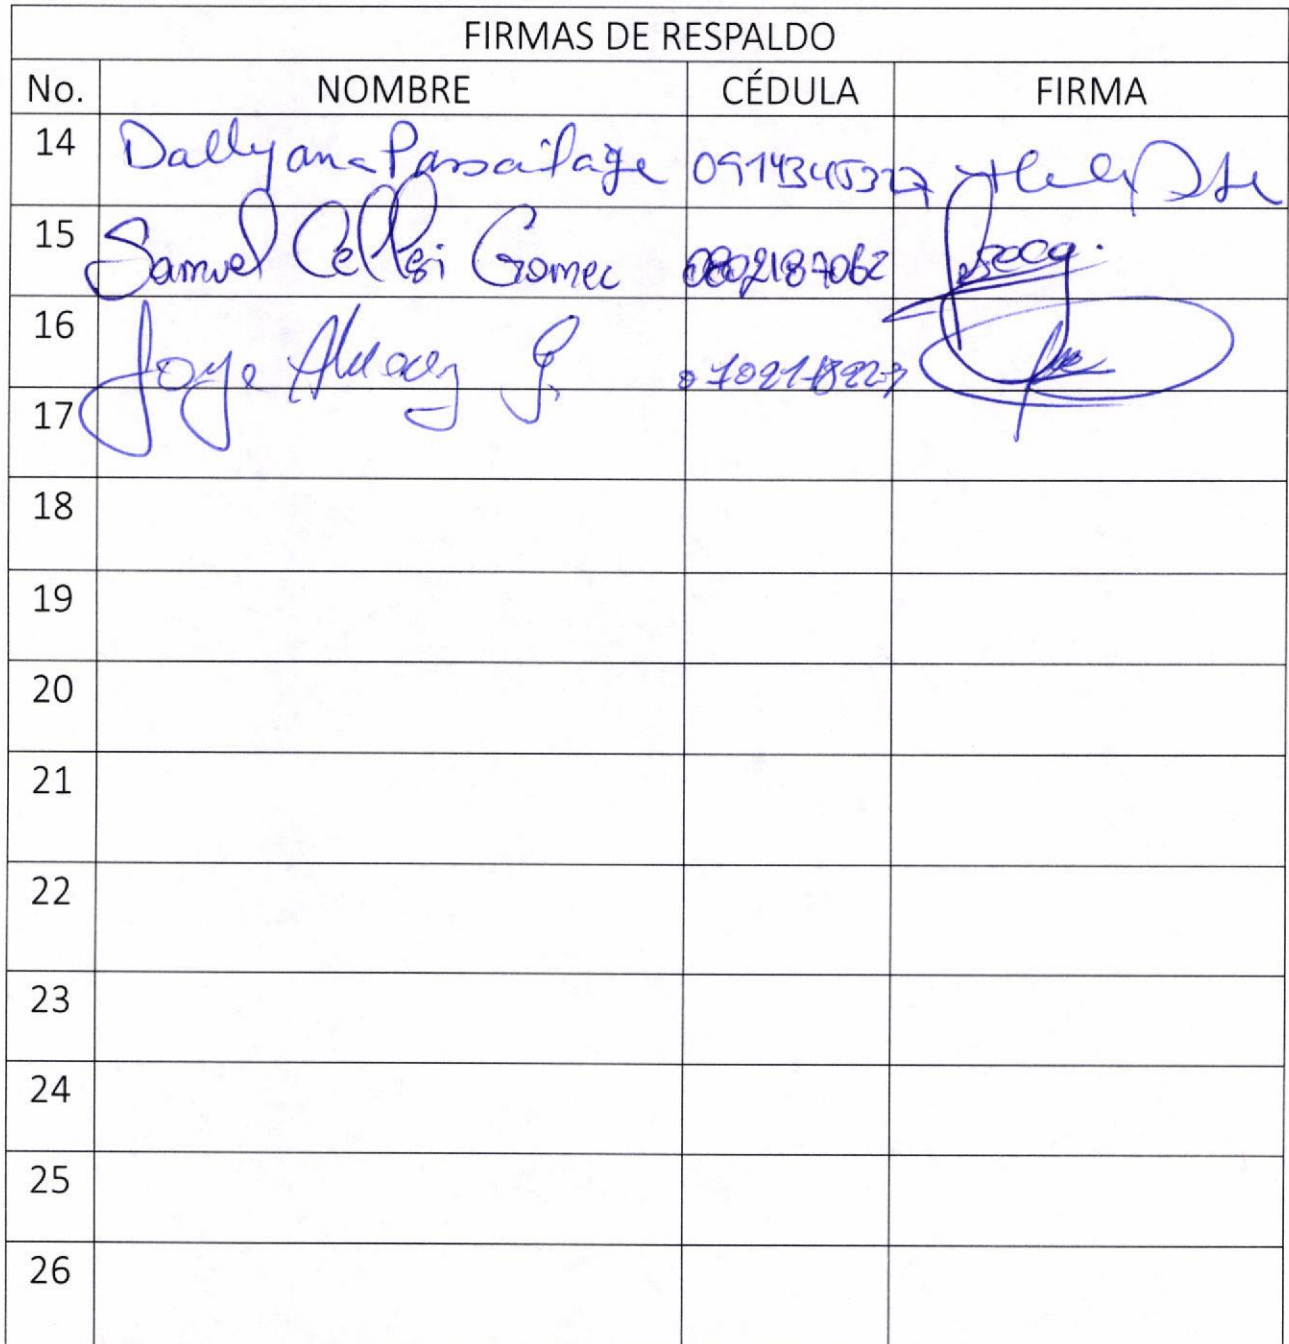 FIRMAS DE RESPALDO
No. NOMBRE CÉDULA FIRMA
14 Dallyana Passailaige 0914345327
15 Samuel Celleri Gomez 0802187062
16 Jorge Alvarez G.
17
18
19
20
21
22
23
24
25
26